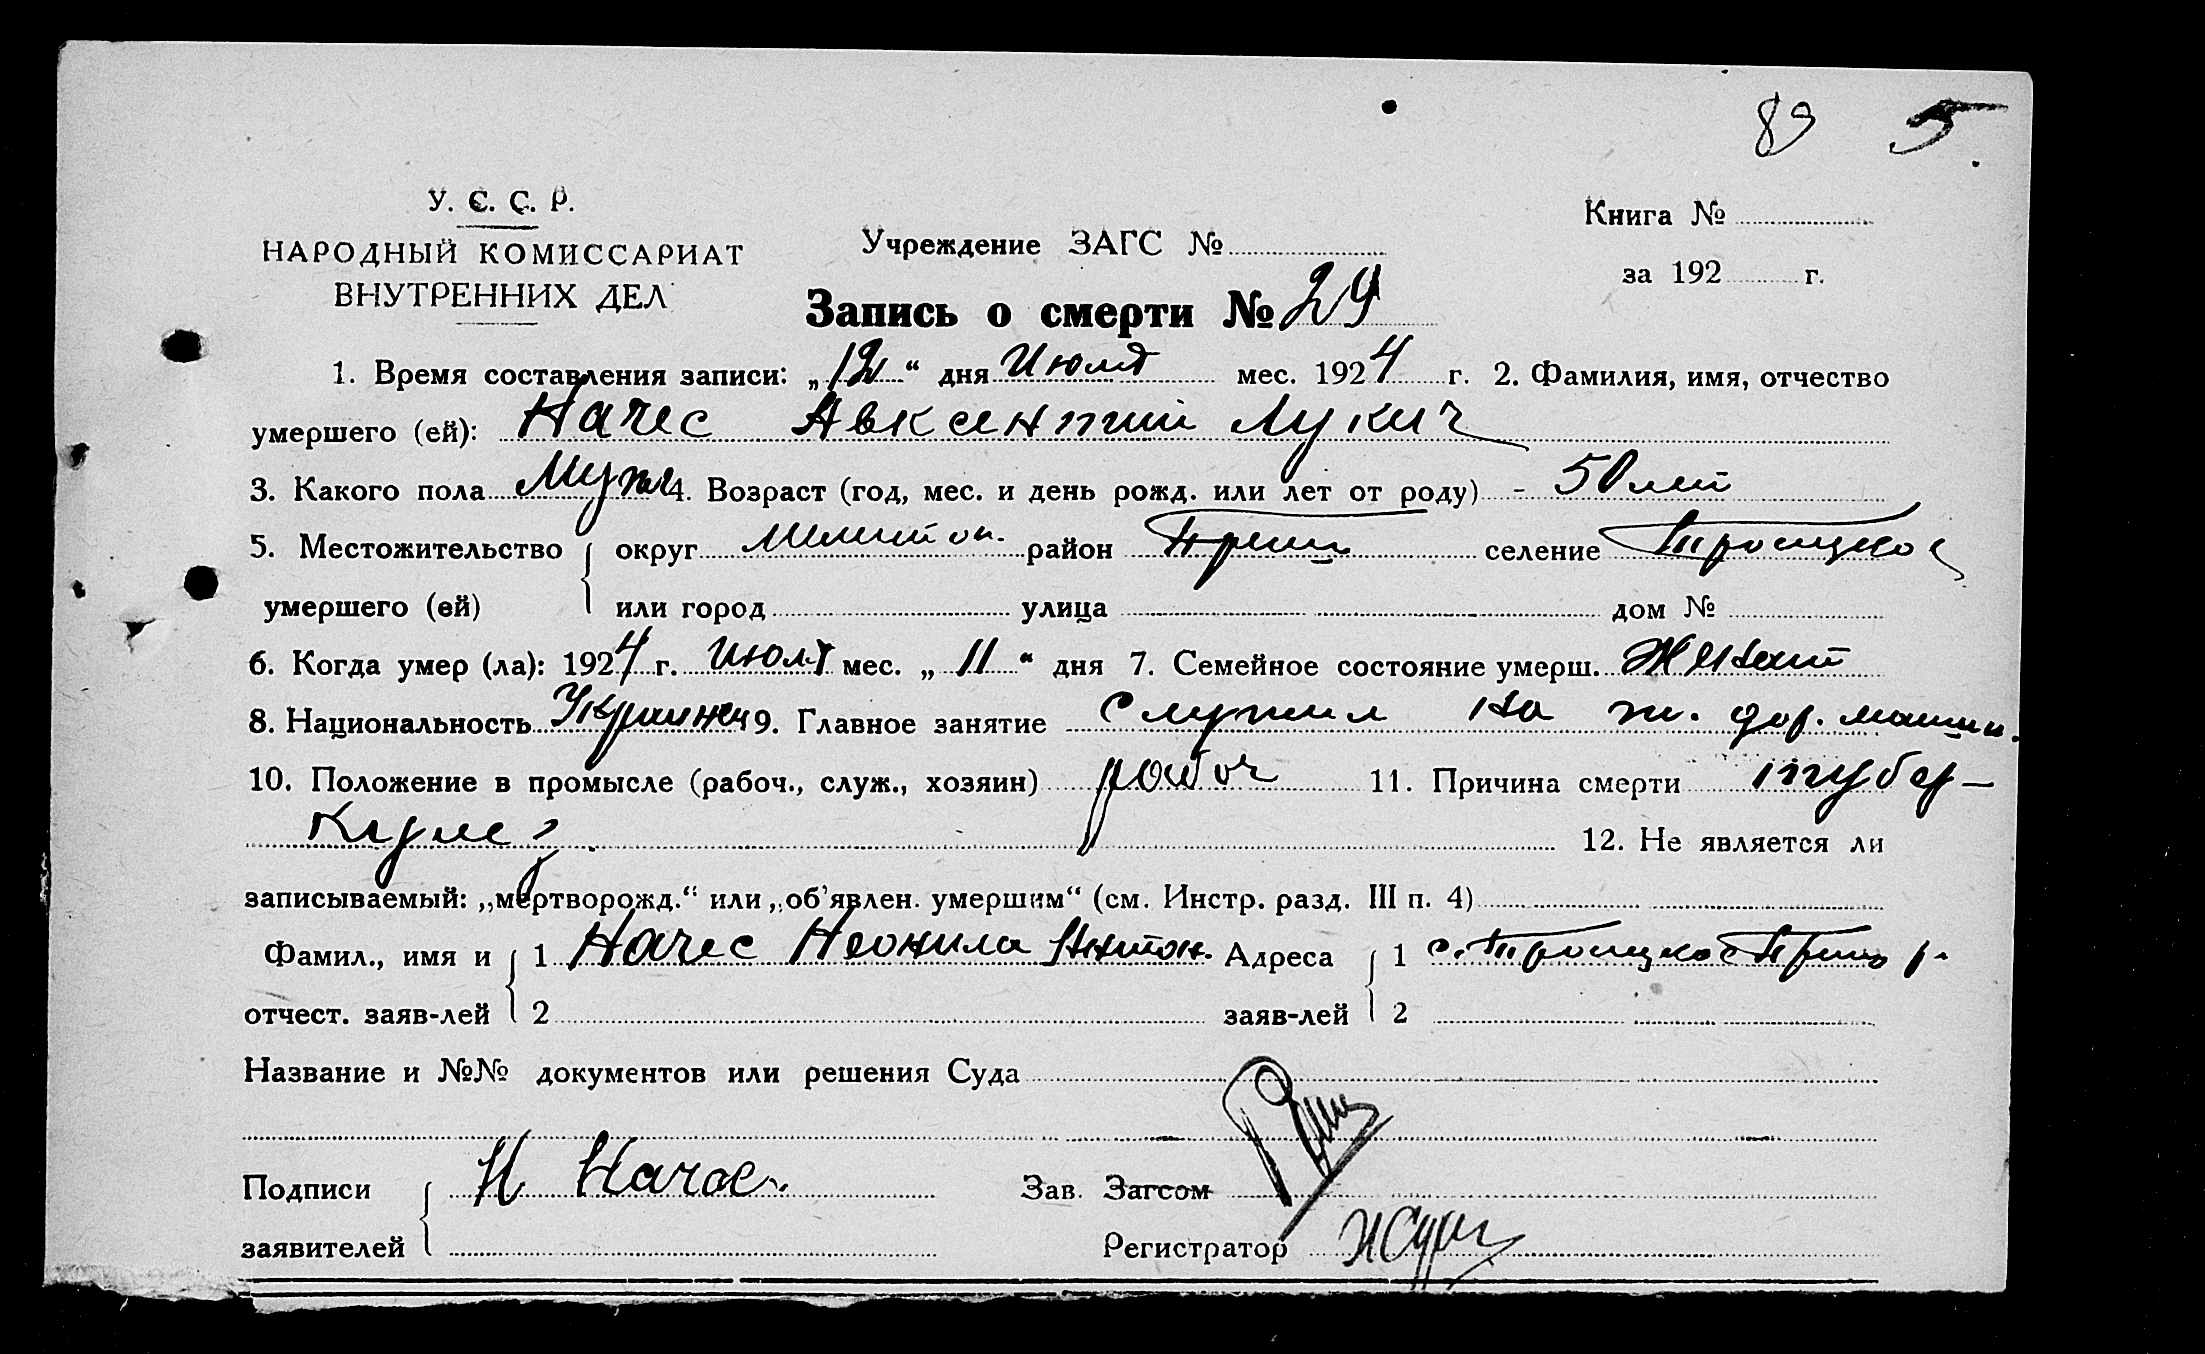 89 5.
У. С. С. Р.
НАРОДНЫЙ КОМИССАРИАТ
ВНУТРЕННИХ ДЕЛ
Учреждение ЗАГС №
Книга №
за 192 г.
Запись о смерти № 29
1. Время составления записи: „12“ дня Июля мес. 1924 г. 2. Фамилия, имя, отчество
умершего (ей): Начес Авксентий Лукич
3. Какого пола Муж 4. Возраст (год, мес. и день рожд. или лет от роду) - 50 лет
5. Местожительство округ Мелитоп. район Приш селение Троицкое
умершего (ей) или город улица дом №
6. Когда умер (ла): 1924 г. июля мес. „11“ дня 7. Семейное состояние умерш. Женат
8. Национальность Украинец 9. Главное занятие Служил на ж. дор. машин.
10. Положение в промысле (рабоч., служ., хозяин) рабоч 11. Причина смерти тубер-
кулез. 12. Не является ли
записываемый: „мертворожд.“ или „об'явлен. умершим“ (см. Инстр. разд. III п. 4)
Фамил., имя и 1 Начес Неонила Антон. Адреса 1 с. Троицкое Приш р.
отчест. заяв-лей 2 заяв-лей 2
Название и №№ документов или решения Суда
Подписи Н Начес. Зав. Загсом
заявителей Регистратор